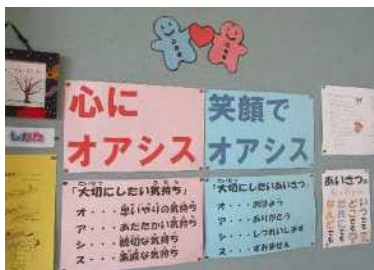 心に
オアシス
笑顔で
オアシス
「大切にしたい気持ち」
オ・・・思いやりの気持ち
ア・・・あたたかい気持ち
シ・・・親切な気持ち
ス・・・素直な気持ち
「大切にしたいあいさつ」
オ・・・おはよう
ア・・・ありがとう
シ・・・しつれいします
ス・・・すみません
あいさつは
いつでも
どこでも
だれにでも
なんどでも